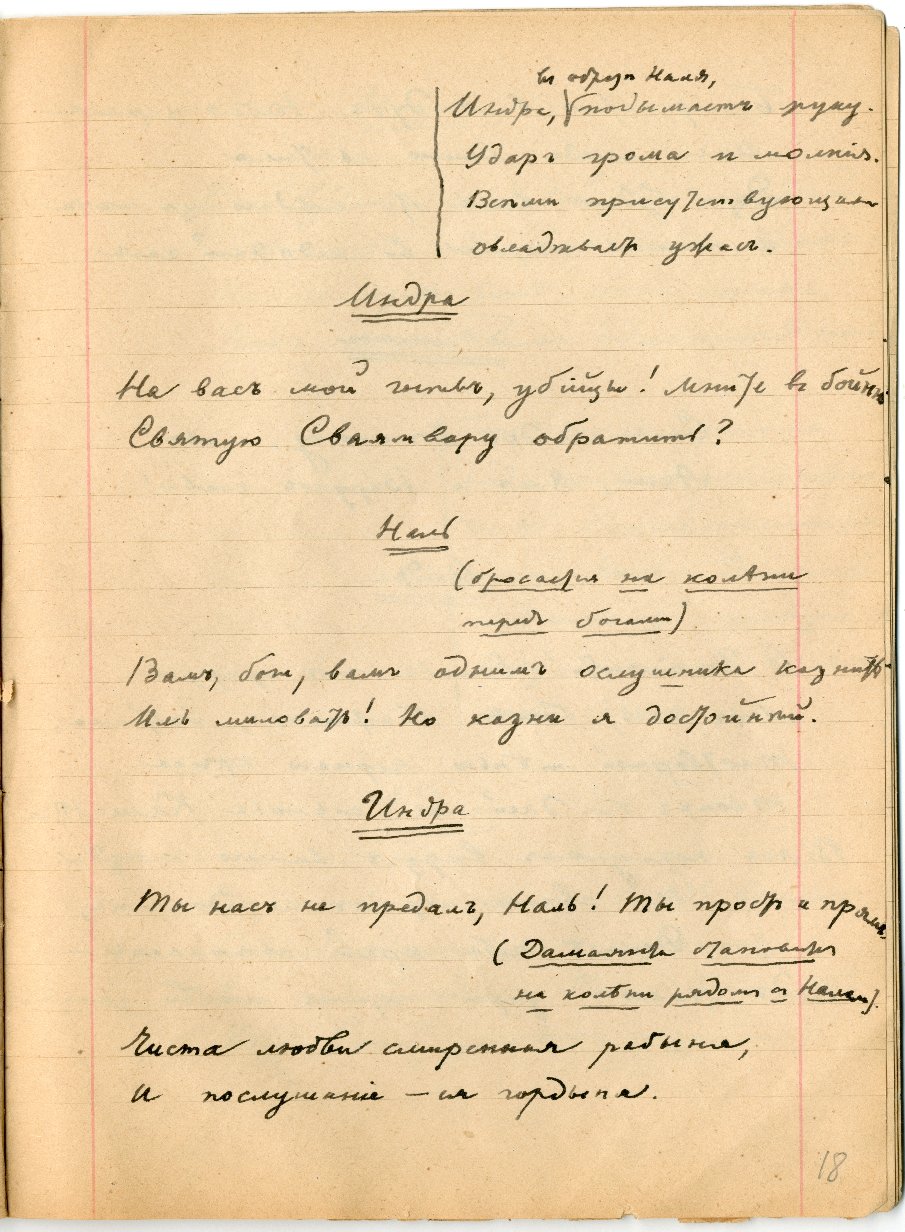 въ образѣ Наля,
Индра, подымаетъ руку.
Ударъ грома и молнія.
Всѣми присутствующими
овладѣваетъ ужасъ.
Индра
На васъ мой гнѣвъ, убійцы! Мните въ бойню
Святую Сваямвару обратить?
Наль
(бросается на колѣни
передъ богами)
Вамъ, боги, вамъ однимъ ослушника казнить
Иль миловать! Но казни я достойный.
Индра
Ты насъ не предалъ, Наль! Ты простъ и прямъ,
(Дамаянти становится
на колѣни рядомъ съ Налемъ).
Чиста любви смиренная рабыня,
И послушаніе – ея гордыня.
18